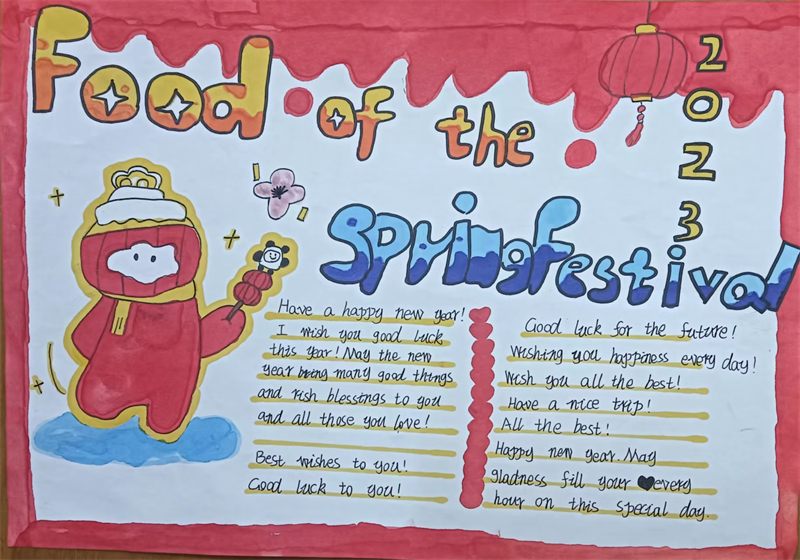 Food of the
Spring Festival
2023
Have a happy new year!
I wish you good luck
this year! May the new
year bring many good things
and rish blessings to you
and all those you love!
Best wishes to you!
Good luck to you!
Good luck for the future!
Wishing you happiness every day!
Wish you all the best!
Have a nice trip!
All the best!
Happy new year. May
gladness fill your every
hour on this special day.